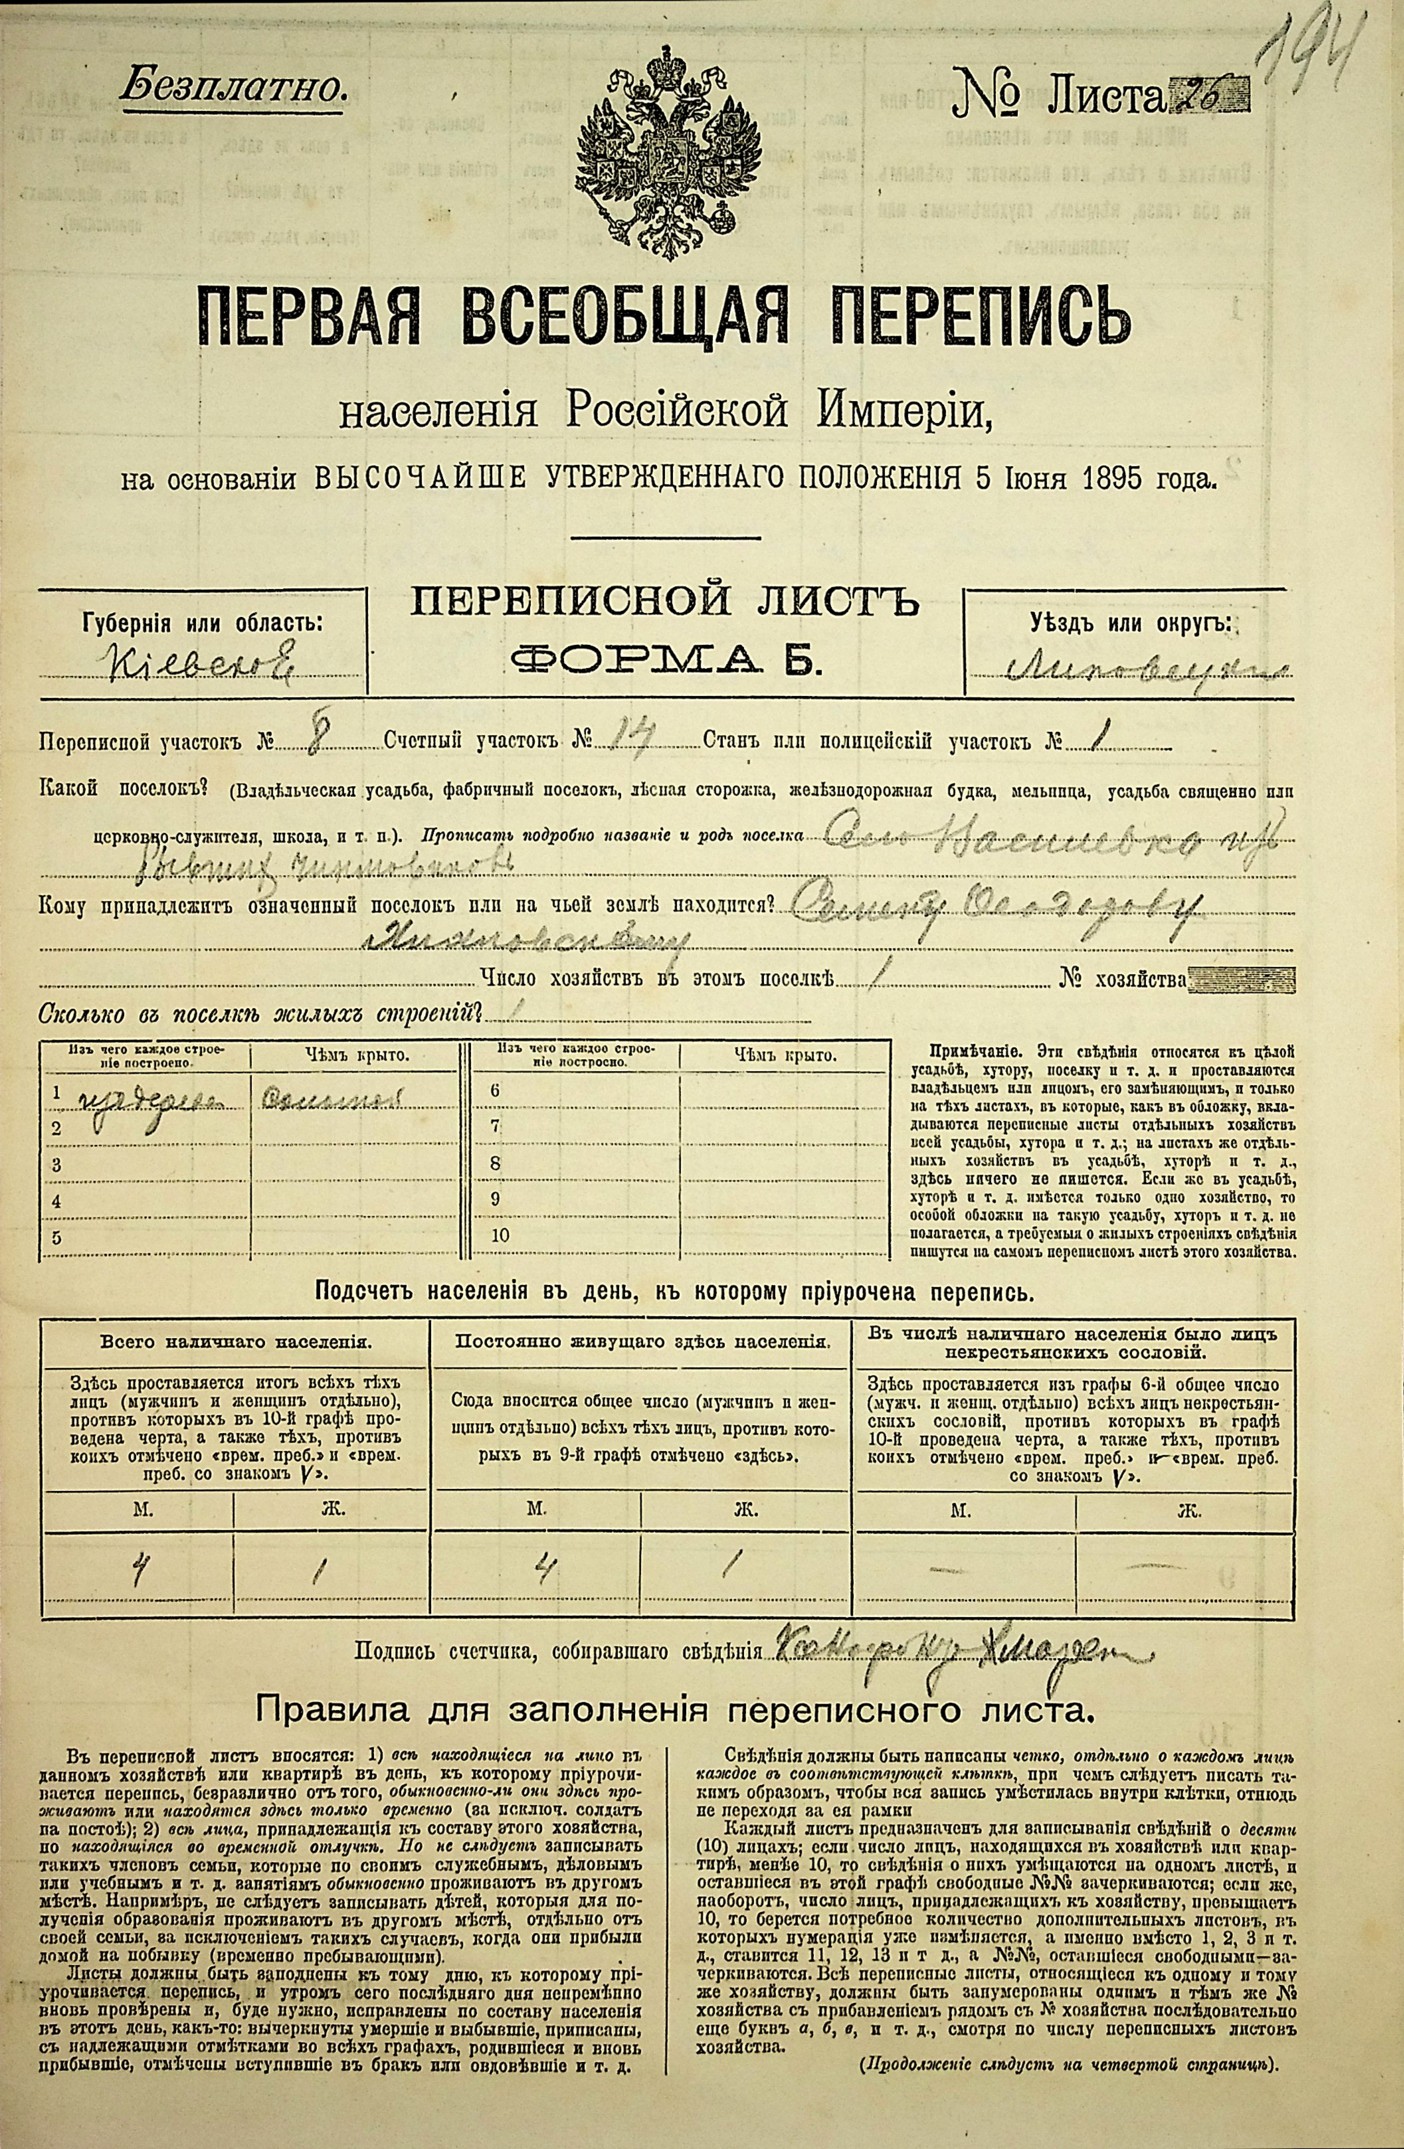 194
Безплатно.
№ Листа 26
ПЕРВАЯ ВСЕОБЩАЯ ПЕРЕПИСЬ
населенія Россійской Имперіи,
на основаніи ВЫСОЧАЙШЕ УТВЕРЖДЕННАГО ПОЛОЖЕНІЯ 5 Іюня 1895 года.
ПЕРЕПИСНОЙ ЛИСТЪ
ФОРМА Б.
Губернія или область:
Кіевской
Уѣздъ или округъ:
Липовецкій
Переписной участокъ № 8 Счетный участокъ № 14 Станъ или полицейскій участокъ № 1
Какой поселокъ? (Владѣльческая усадьба, фабричный поселокъ, лѣсная сторожка, желѣзнодорожная будка, мельница, усадьба священно или
церковно-служителя, школа, и т. п.). Прописать подробно названіе и родъ поселка Село Василевка
бывших чиншовиковъ
Кому принадлежитъ означенный поселокъ или на чьей землѣ находится? Семену Ѳеодорову
Число хозяйствъ въ этомъ поселкѣ 1 № хозяйства
Сколько въ поселкѣ жилыхъ строеній? 1
Изъ чего каждое строе-
ніе построено.
Чѣмъ крыто.
Изъ чего каждое строе-
ніе построено.
Чѣмъ крыто.
1 изъ дерева соломой
2
3
4
5
6
7
8
9
10
Примѣчаніе. Эти свѣдѣнія относятся къ цѣлой
усадьбѣ, хутору, поселку и т. д. и проставляются
владѣльцемъ или лицомъ, его замѣняющимъ, и только
на тѣхъ листахъ, въ которые, какъ въ обложку, вкла-
дываются переписные листы отдѣльныхъ хозяйствъ
всей усадьбы, хутора и т. д.; на листахъ же отдѣль-
ныхъ хозяйствъ въ усадьбѣ, хуторѣ и т. д.,
здѣсь ничего не пишется. Если же въ усадьбѣ,
хуторѣ и т. д. имѣется только одно хозяйство, то
особой обложки на такую усадьбу, хуторъ и т. д. не
полагается, а требуемыя о жилыхъ строеніяхъ свѣдѣнія
пишутся на самомъ переписномъ листѣ этого хозяйства.
Подсчетъ населенія въ день, къ которому пріурочена перепись.
Всего наличнаго населенія.
Здѣсь проставляется итогъ всѣхъ тѣхъ
лицъ (мужчинъ и женщинъ отдѣльно),
противъ которыхъ въ 10-й графѣ про-
ведена черта, а также тѣхъ, противъ
коихъ отмѣчено «врем. преб.» и «врем.
преб. со знакомъ V».
Постоянно живущаго здѣсь населенія.
Сюда вносится общее число (мужчинъ и жен-
щинъ отдѣльно) всѣхъ тѣхъ лицъ, противъ кото-
рыхъ въ 9-й графѣ отмѣчено «здѣсь».
Въ числѣ наличнаго населенія было лицъ
некрестьянскихъ сословій.
Здѣсь проставляется изъ графы 6-й общее число
(мужч. и женщ. отдѣльно) всѣхъ лицъ некрестьян-
скихъ сословій, противъ которыхъ въ графѣ
10-й проведена черта, а также тѣхъ, противъ
коихъ отмѣчено «врем. преб.» и «врем. преб.
со знакомъ V».
М. Ж. М. Ж. М. Ж.
4 1 4 1 — —
Подпись счетчика, собиравшаго свѣдѣнія
Правила для заполненія переписного листа.
Въ переписной листъ вносятся: 1) всѣ находящіеся на лицо въ
данномъ хозяйствѣ или квартирѣ въ день, къ которому пріурочи-
вается перепись, безразлично отъ того, обыкновенно-ли они здѣсь про-
живаютъ или находятся здѣсь только временно (за исключ. солдатъ
на постоѣ); 2) всѣ лица, принадлежащія къ составу этого хозяйства,
но находящіяся во временной отлучкѣ. Но не слѣдуетъ записывать
такихъ членовъ семьи, которые по своимъ служебнымъ, дѣловымъ
или учебнымъ и т. д. занятіямъ обыкновенно проживаютъ въ другомъ
мѣстѣ. Напримѣръ, не слѣдуетъ записывать дѣтей, которыя для по-
лученія образованія проживаютъ въ другомъ мѣстѣ, отдѣльно отъ
своей семьи, за исключеніемъ такихъ случаевъ, когда они прибыли
домой на побывку (временно пребывающими).
Листы должны быть заполнены къ тому дню, къ которому прі-
урочивается перепись, и утромъ сего послѣдняго дня непремѣнно
вновь провѣрены и, буде нужно, исправлены по составу населенія
въ этотъ день, какъ-то: вычеркнуты умершіе и выбывшіе, приписаны,
съ надлежащими отмѣтками во всѣхъ графахъ, родившіеся и вновь
прибывшіе, отмѣчены вступившіе въ бракъ или овдовѣвшіе и т. д.
Свѣдѣнія должны быть написаны четко, отдѣльно о каждомъ лицѣ
каждое въ соотвѣтствующей клѣткѣ, при чемъ слѣдуетъ писать та-
кимъ образомъ, чтобы вся запись умѣстилась внутри клѣтки, отнюдь
не переходя за ея рамки
Каждый листъ предназначенъ для записыванія свѣдѣній о десяти
(10) лицахъ; если число лицъ, находящихся въ хозяйствѣ или квар-
тирѣ, менѣе 10, то свѣдѣнія о нихъ умѣщаются на одномъ листѣ, и
оставшіеся въ этой графѣ свободные №№ зачеркиваются; если же,
наоборотъ, число лицъ, принадлежащихъ къ хозяйству, превышаетъ
10, то берется потребное количество дополнительныхъ листовъ, въ
которыхъ нумерація уже измѣняется, а именно вмѣсто 1, 2, 3 и т.
д., ставится 11, 12, 13 и т д., а №№, оставшіеся свободными—за-
черкиваются. Всѣ переписные листы, относящіеся къ одному и тому
же хозяйству, должны быть занумерованы однимъ и тѣмъ же №
хозяйства съ прибавленіемъ рядомъ съ № хозяйства послѣдовательно
еще буквъ а, б, в, и т. д., смотря по числу переписныхъ листовъ
хозяйства.
(Продолженіе слѣдуетъ на четвертой страницѣ).